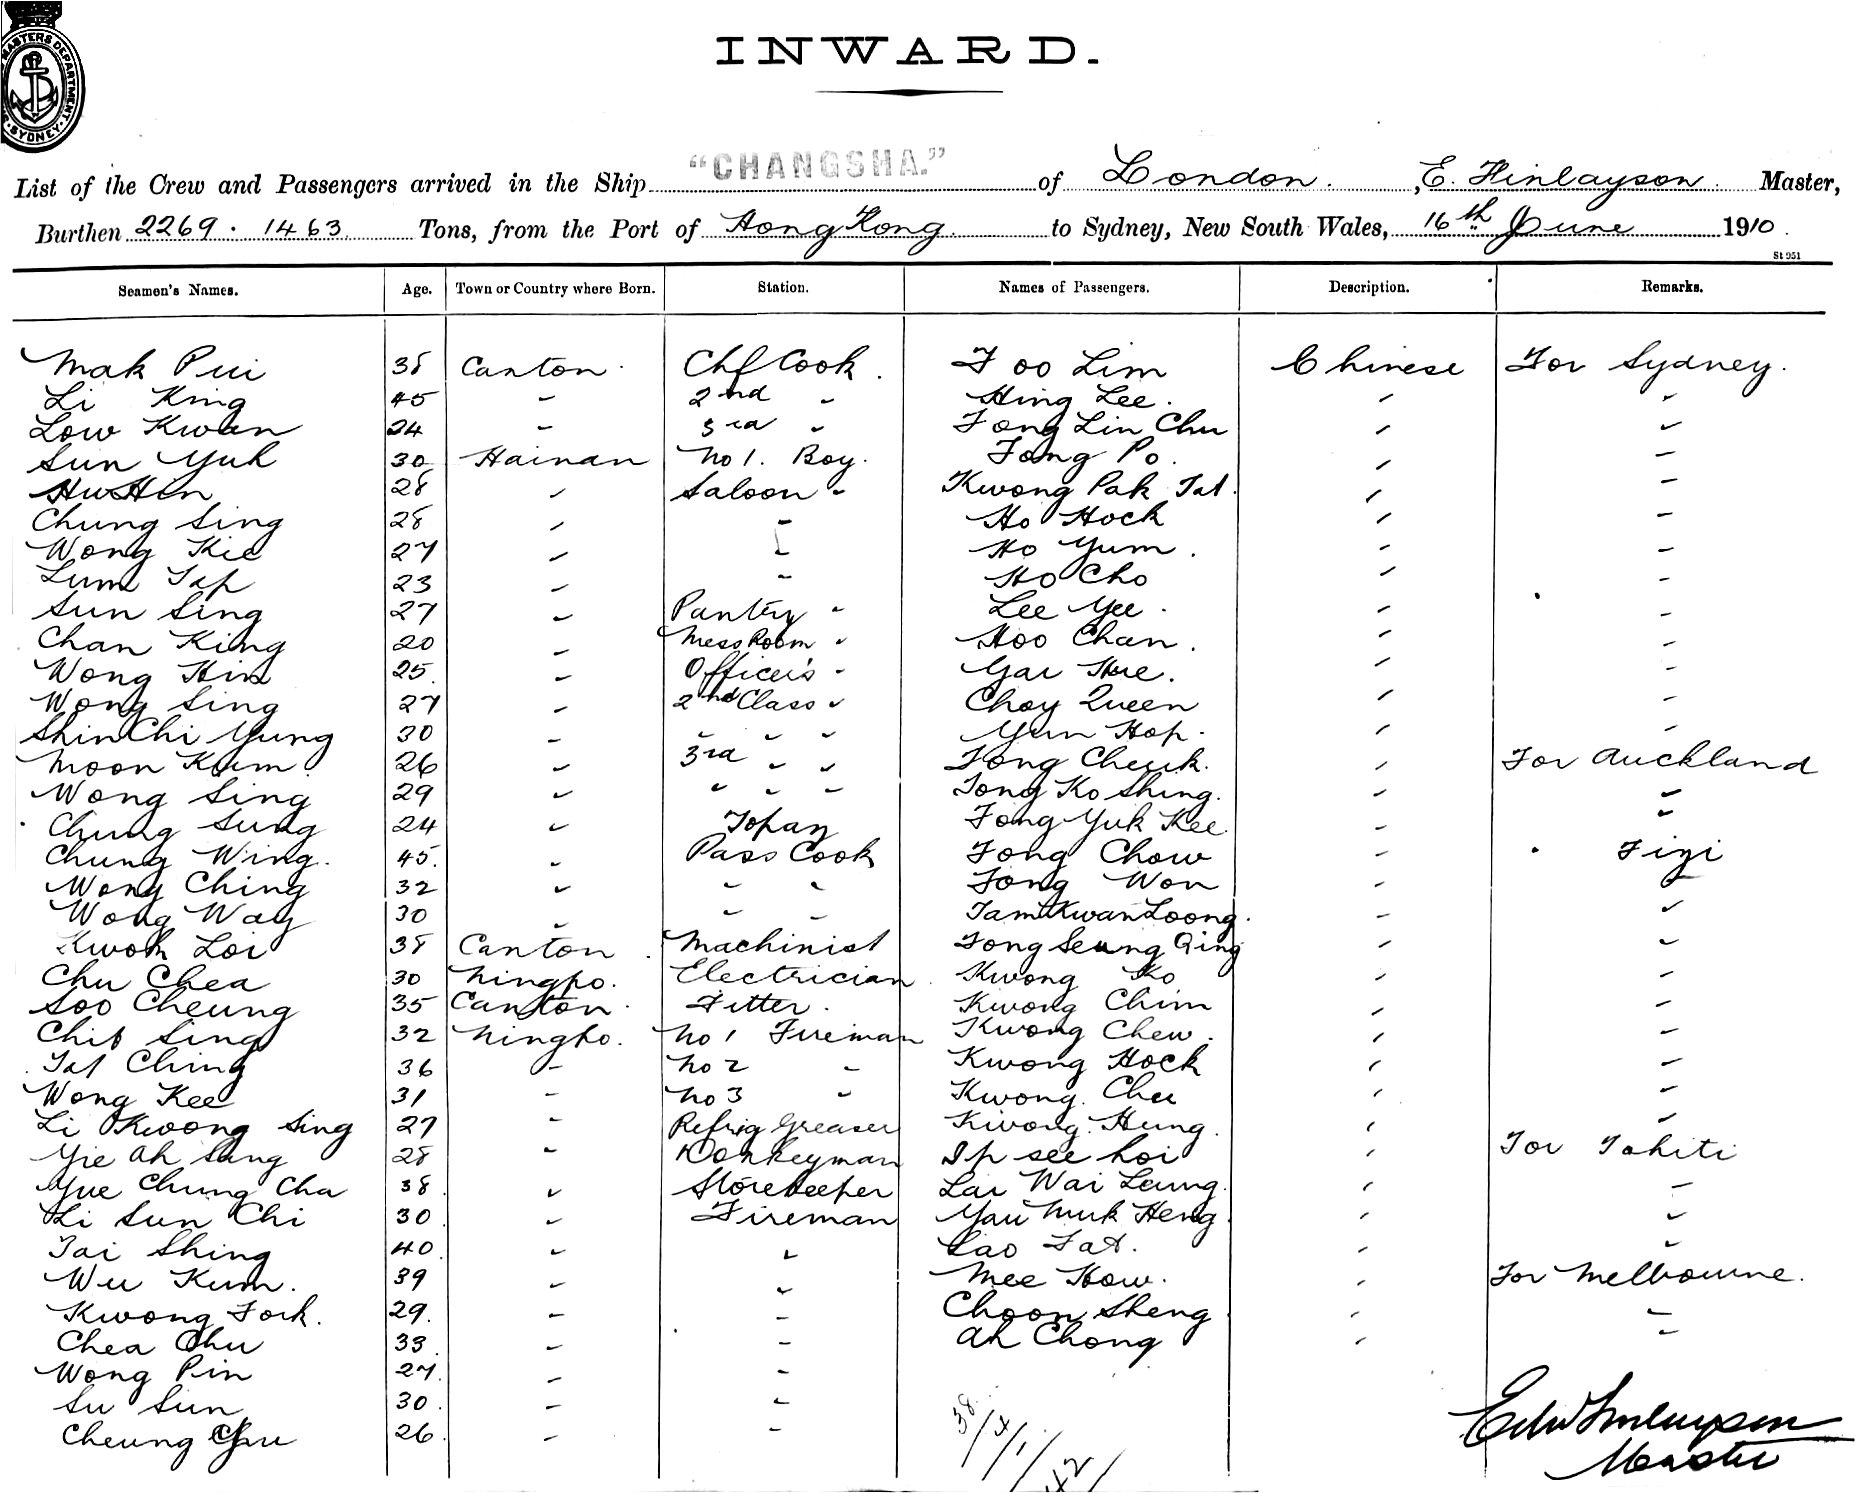 MASTERS DEPARTMENT
SYDNEY
INWARD.
List of the Crew and Passengers arrived in the Ship "CHANGSHA." of London. , E. Finlayson. Master,
Burthen 2269 . 1463 Tons, from the Port of Hong Kong. to Sydney, New South Wales, 16th June 1910.
St 951
Seamen's Names. Age. Town or Country where Born. Station. Names of Passengers. Description. Remarks.
Mak Pui 38 Canton. Chf Cook. Foo Lim Chinese For Sydney.
Li King 45 " 2nd " Hing Lee. " "
Low Kwan 24 " 3rd " Fong Lin Chu " "
Sun Yuk 30 Hainan No 1. Boy. Fong Po. " "
Hu Hin 28 " Saloon " Kwong Pak Tat. " "
Chung Sing 28 " " Ho Hock " "
Wong Kie 27 " " Ho Yum. " "
Lum Tap 23 " " Ho Cho " "
Sun Sing 27 " Pantry " Lee Yee. " "
Chan King 20 " Mess Room " Hoo Chan. " "
Wong Hin 25. " Officer's " Gar Hue. " "
Wong Sing 27 " 2nd Class " Choy Queen " "
Shin Chi Yung 30 " " " " Yun Hop. " "
Moon Kum. 26 " 3rd " " Fong Cheuk. " For Auckland
Wong Sing 29 " " " " Fong Ko Shing. " "
Chung Sung 24 " Topay Fong Yuk Kee " "
Chung Wing. 45. " Pass Cook Fong Chow " " Fizi
Wong Ching 32 " " " Fong Won " "
Wong Way 30 " " " Tam Kwan Loong. " "
Kwok Loi 38 Canton. Machinist Fong Seung Qing " "
Chu Chea 30 Ningpo. Electrician. Kwong Ko " "
Soo Cheung 35 Canton. Fitter. Kwong Chim " "
Chit Sing 32 Ningpo. No 1 Fireman Kwong Chew. " "
Tat Ching 36 " No 2 " Kwong Hock " "
Wong Kee 31 " No 3 " Kwong Chee " "
Li Kwong Sing 27 " Refrig Greaser Kwong Hung. " "
Yie Ah Sang 28 " Donkeyman Ip see hoi " For Tahiti
Yue Chung Cha 38 " Storekeeper Lai Wai Leung. " "
Li Sun Chi 30 " Fireman Yau Muk Heng " "
Tai Shing 40. " " Lao Fat. " "
Wu Kum. 39 " " Mee How. " For Melbourne.
Kwong Fork. 29. " " Choon Sheng " "
Chea Chu 33 " " Ah Chong " "
Wong Pin 27. " "
Su Sun 30. " "
Cheung 26. " "
38/4/1/42/
Edw Finlayson
Master